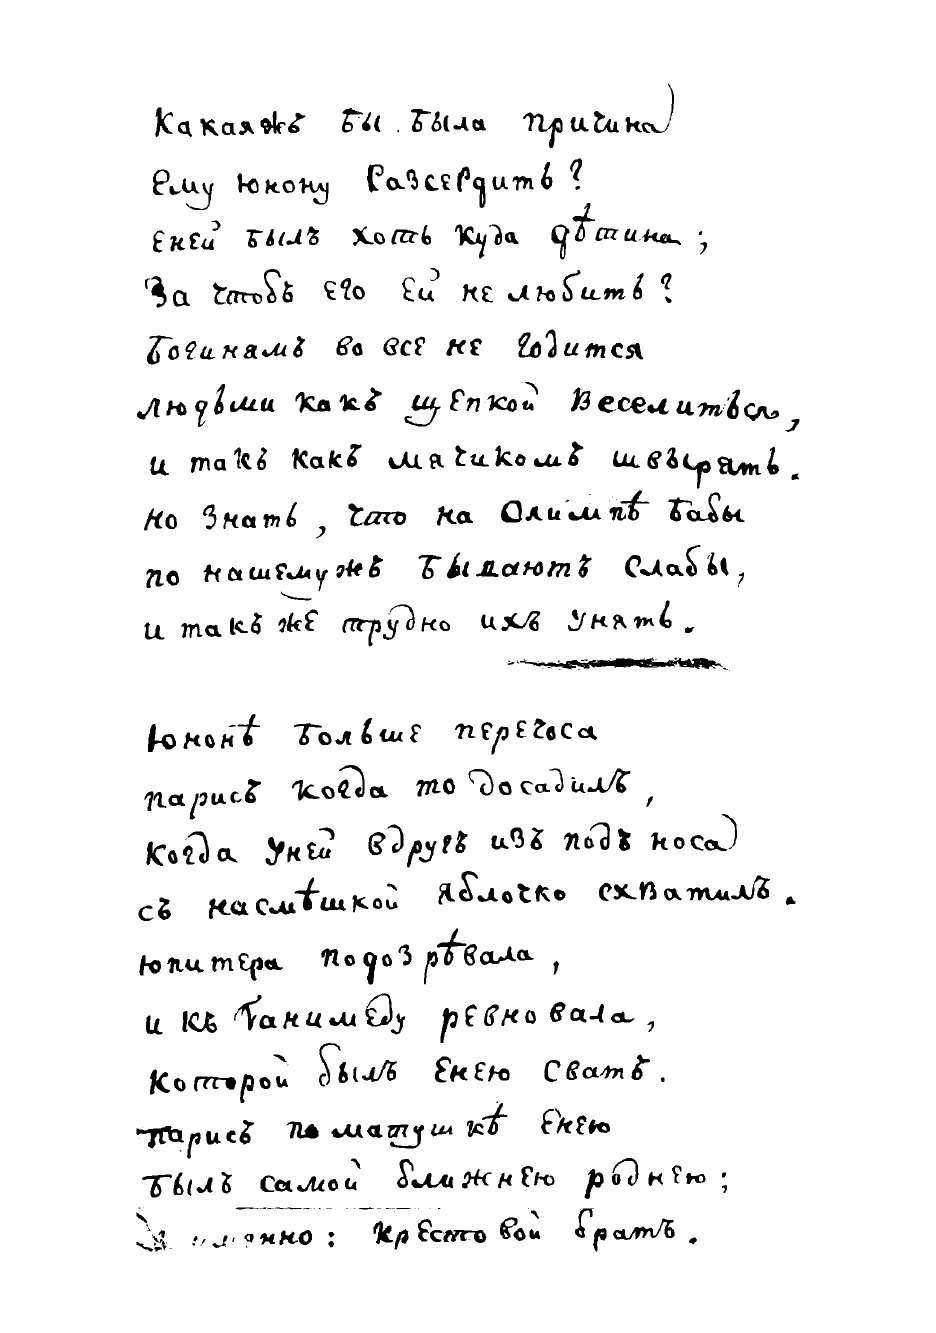 Какаяжъ бы была причина
Ему юнону Разсердить?
Еней былъ хоть куда дѣтина;
За чтобъ его ей не любить?
Богинямъ во все не годится
людьми какъ щепкой Веселиться,
и такъ какъ мячикомъ швырять.
но Знать, что на Олимпѣ бабы
по нашемужъ бываютъ слабы,
и такъ же трудно ихъ унять.
Юнонѣ больше перечоса
парисъ когда то досадилъ,
Когда уней вдругъ изъ подъ носа
съ насмѣшкой яблочко схватилъ.
юпитера подозрѣвала,
и къ Ганимеду ревновала,
которой былъ Енею Сватъ.
парисъ по матушкѣ Енею
былъ самой ближнею роднею;
крестовой братъ.